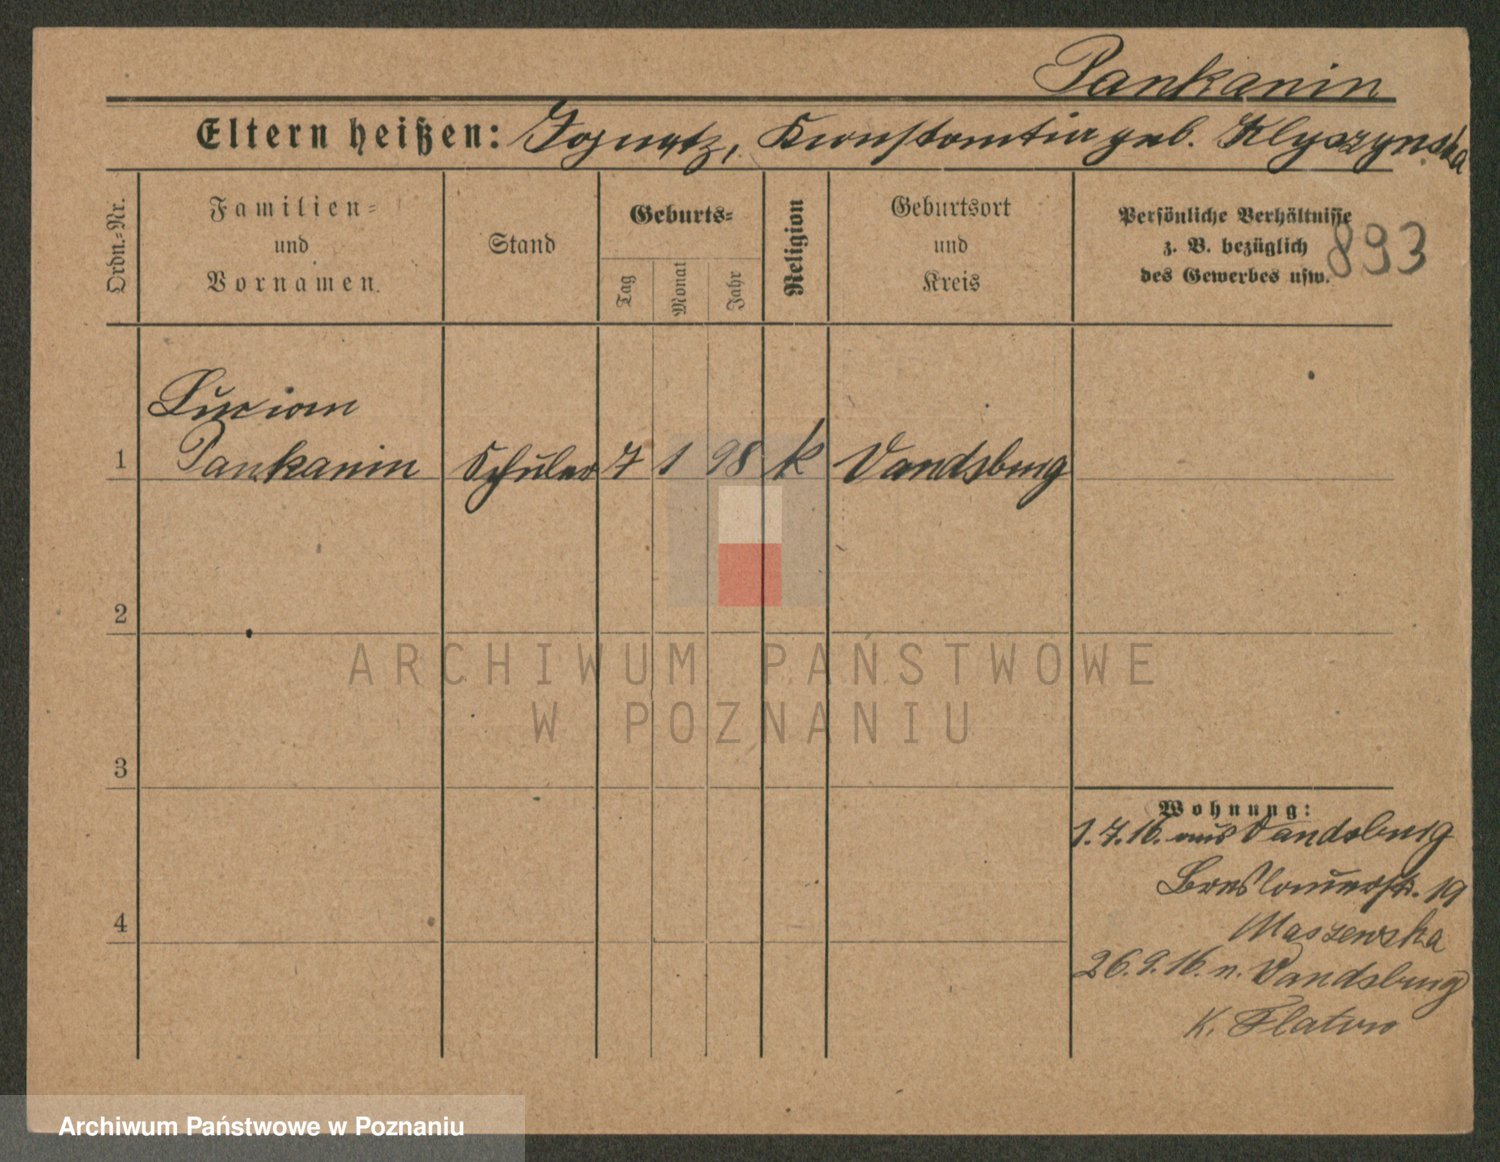 Pankanin
Eltern heißen: Ignatz, Konstantia geb. Klyszynska
Ordn.-Nr.
Familien-
und
Vornamen.
Stand
Geburts-
Tag
Monat
Jahr
Religion
Geburtsort
und
Kreis
Persönliche Verhältnisse
z. B. bezüglich
des Gewerbes usw.
893
Lucian
1 Pankanin Schüler 7 1 98 k Vandsburg
2
ARCHIWUM PAŃSTWOWE
W POZNANIU
3
Wohnung:
1.7.16. aus Vandsburg
Breslauerstr. 19
Maszewska
4
26.9.16. n. Vandsburg
K. Flatow
Archiwum Państwowe w Poznaniu